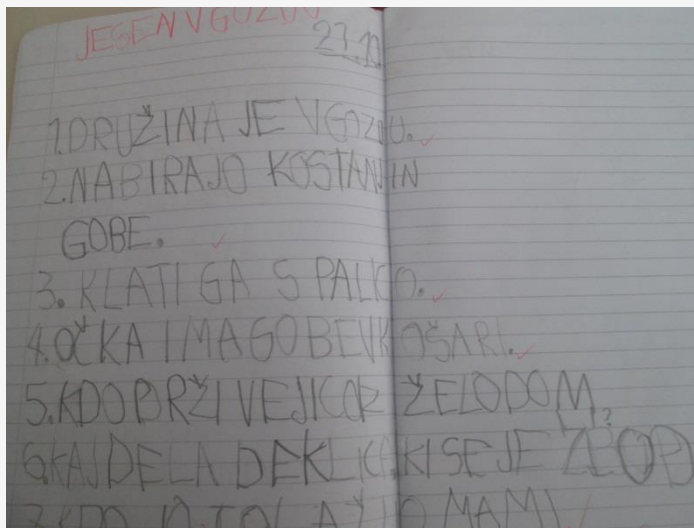 JESEN V GOZDU
27.10
1. DRUŽINA JE V GOZDU.
2. NABIRAJO KOSTANJ IN
GOBE.
3. KLATI GA S PALICO.
4. OČKA IMA GOBE V KOŠARI.
5. KDO DRŽI VEJICO Z ŽELODOM?
6. KAJ DELA DEKLICA KI SE JE ZBOD
7. KDO JO TOLAŽI O MAMI